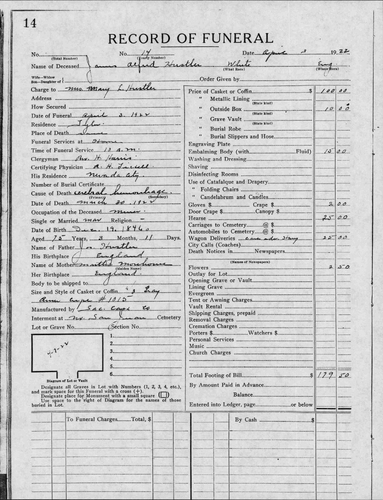 14
RECORD OF FUNERAL
No. No. 14 Date April 3 1922
(Total Number) (Yearly Number)
Name of Deceased James Alfred Hustler White Eng.
(What Race) (Where Born)
Wife—Widow
Son—Daughter of Order Given By
Charge to Mrs Mary L Hustler
Address
How Secured
Date of Funeral April 3 1922
Residence
Place of Death
Services at
Time of Service 10 a.m.
Clergyman Rev. H. Harris
Certifying Physician
His Residence
Number of Burial Certificate
Cause of Death cerebral hemorrhage
(Primary) (Secondary)
Date of Death March 30 1922
Occupation of the Deceased Miner
Single or Married mar Religion -
Date of Birth Dec. 19 1846
Aged 75 Years 3 Months 11 Days
Name of Father Hustler
His Birthplace England
Name of Mother Martha
(Maiden Name)
Her Birthplace England
Body to be shipped to
Size and Style of Casket or Coffin
Manufactured by
Interment at Cemetery
Lot or Grave No. Section No.
1
2
3
4
5
6
Diagram of Lot or Vault
Designate all Graves in Lot with Numbers (1, 2, 3, 4, etc.), and mark space for this Funeral with a cross (+).
Designate place for Monument with a small square (□)
Use space to the right of Diagram for the names of those buried in Lot.
Price of Casket or Coffin $ 100 00
" Metallic Lining
" Outside Box 10 00
" Grave Vault
" Burial Robe
" Burial Slippers and Hose
Engraving Plate
Embalming Body (with Fluid) 15 00
Washing and Dressing
Shaving
Disinfecting Rooms
Use of Catafalque and Drapery
" Folding Chairs
" Candelabrum and Candles
Gloves $ 2 00
Door Crape $ Crape $
Hearse 25 00
Carriages to Cemetery @ $
Automobiles to Cemetery @ $
Wagon Deliveries 25 00
City Calls (Coaches)
Death Notices in Newspapers
(Names of Newspapers)
Flowers 2 50
Outlay for Lot
Opening Grave or Vault
Lining Grave
Evergreen
Tent or Awning Charges
Vault Rental
Shipping Charges, prepaid
Removal Charges
Cremation Charges
Porters $ Watchers $
Personal Services
Music
Church Charges
Total Footing of Bill $ 179 50
By Amount Paid in Advance
Balance
Entered into Ledger, page or below
To Funeral Charges. Total, $
By Cash $